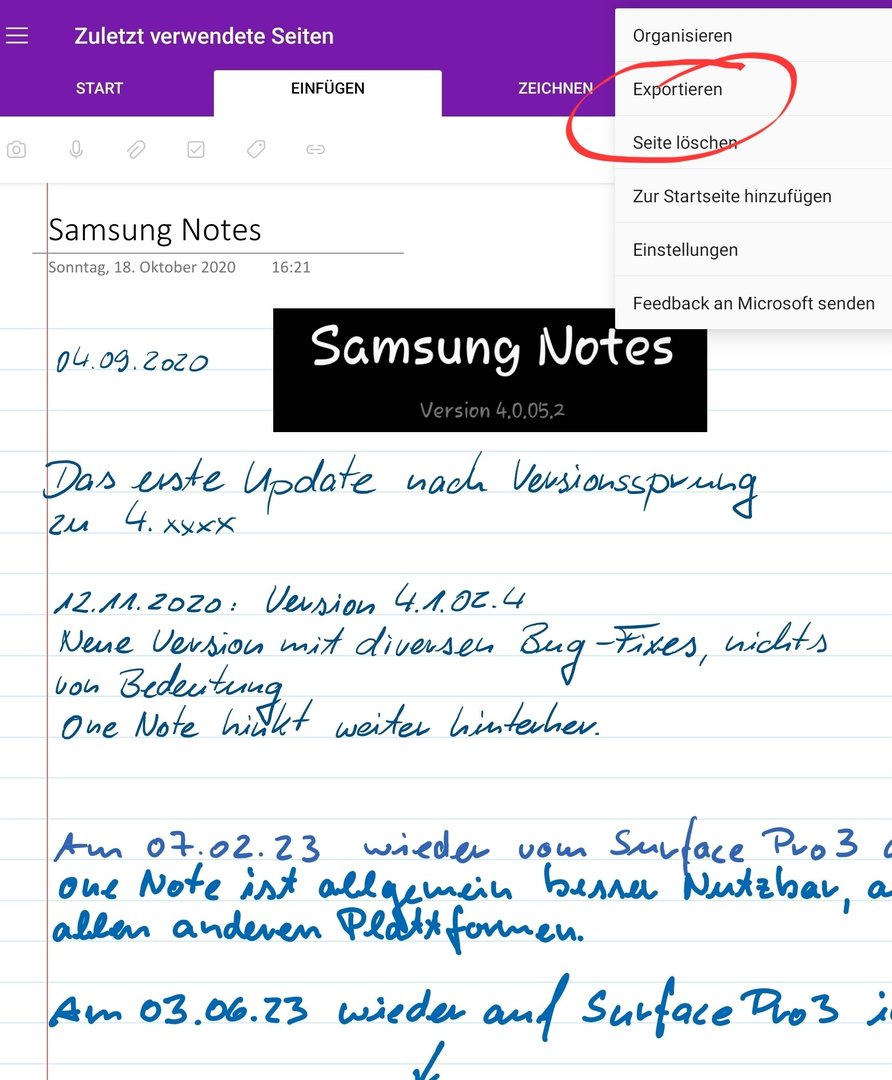 Zuletzt verwendete Seiten
START EINFÜGEN ZEICHNEN
Organisieren
Exportieren
Seite löschen
Zur Startseite hinzufügen
Einstellungen
Feedback an Microsoft senden
Samsung Notes
Sonntag, 18. Oktober 2020 16:21
04.09.2020
Samsung Notes
Version 4.0.05.2
Das erste Update nach Versionssprung
zu 4.xxxx
12.11.2020: Version 4.1.02.4
Neue Version mit diversen Bug-Fixes, nichts
von Bedeutung
One Note hinkt weiter hinterher.
Am 07.02.23 wieder vom Surface Pro3
One Note ist allgemein besser Nutzbar,
allen anderen Plattformen.
Am 03.06.23 wieder auf Surface Pro3